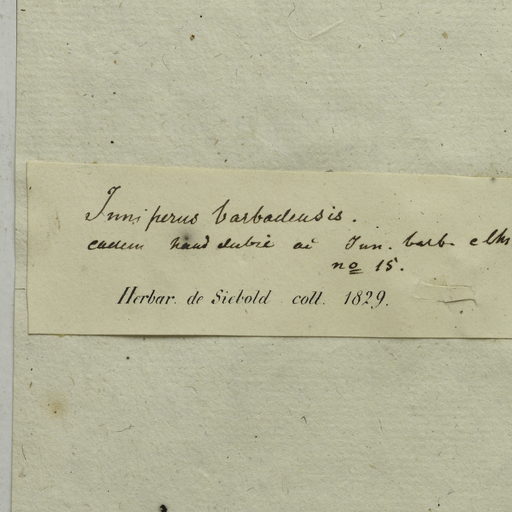 Juniperus barbadensis.
eadem haud dubie ac Jun. barb.
no 15.
Herbar. de Siebold coll. 1829.